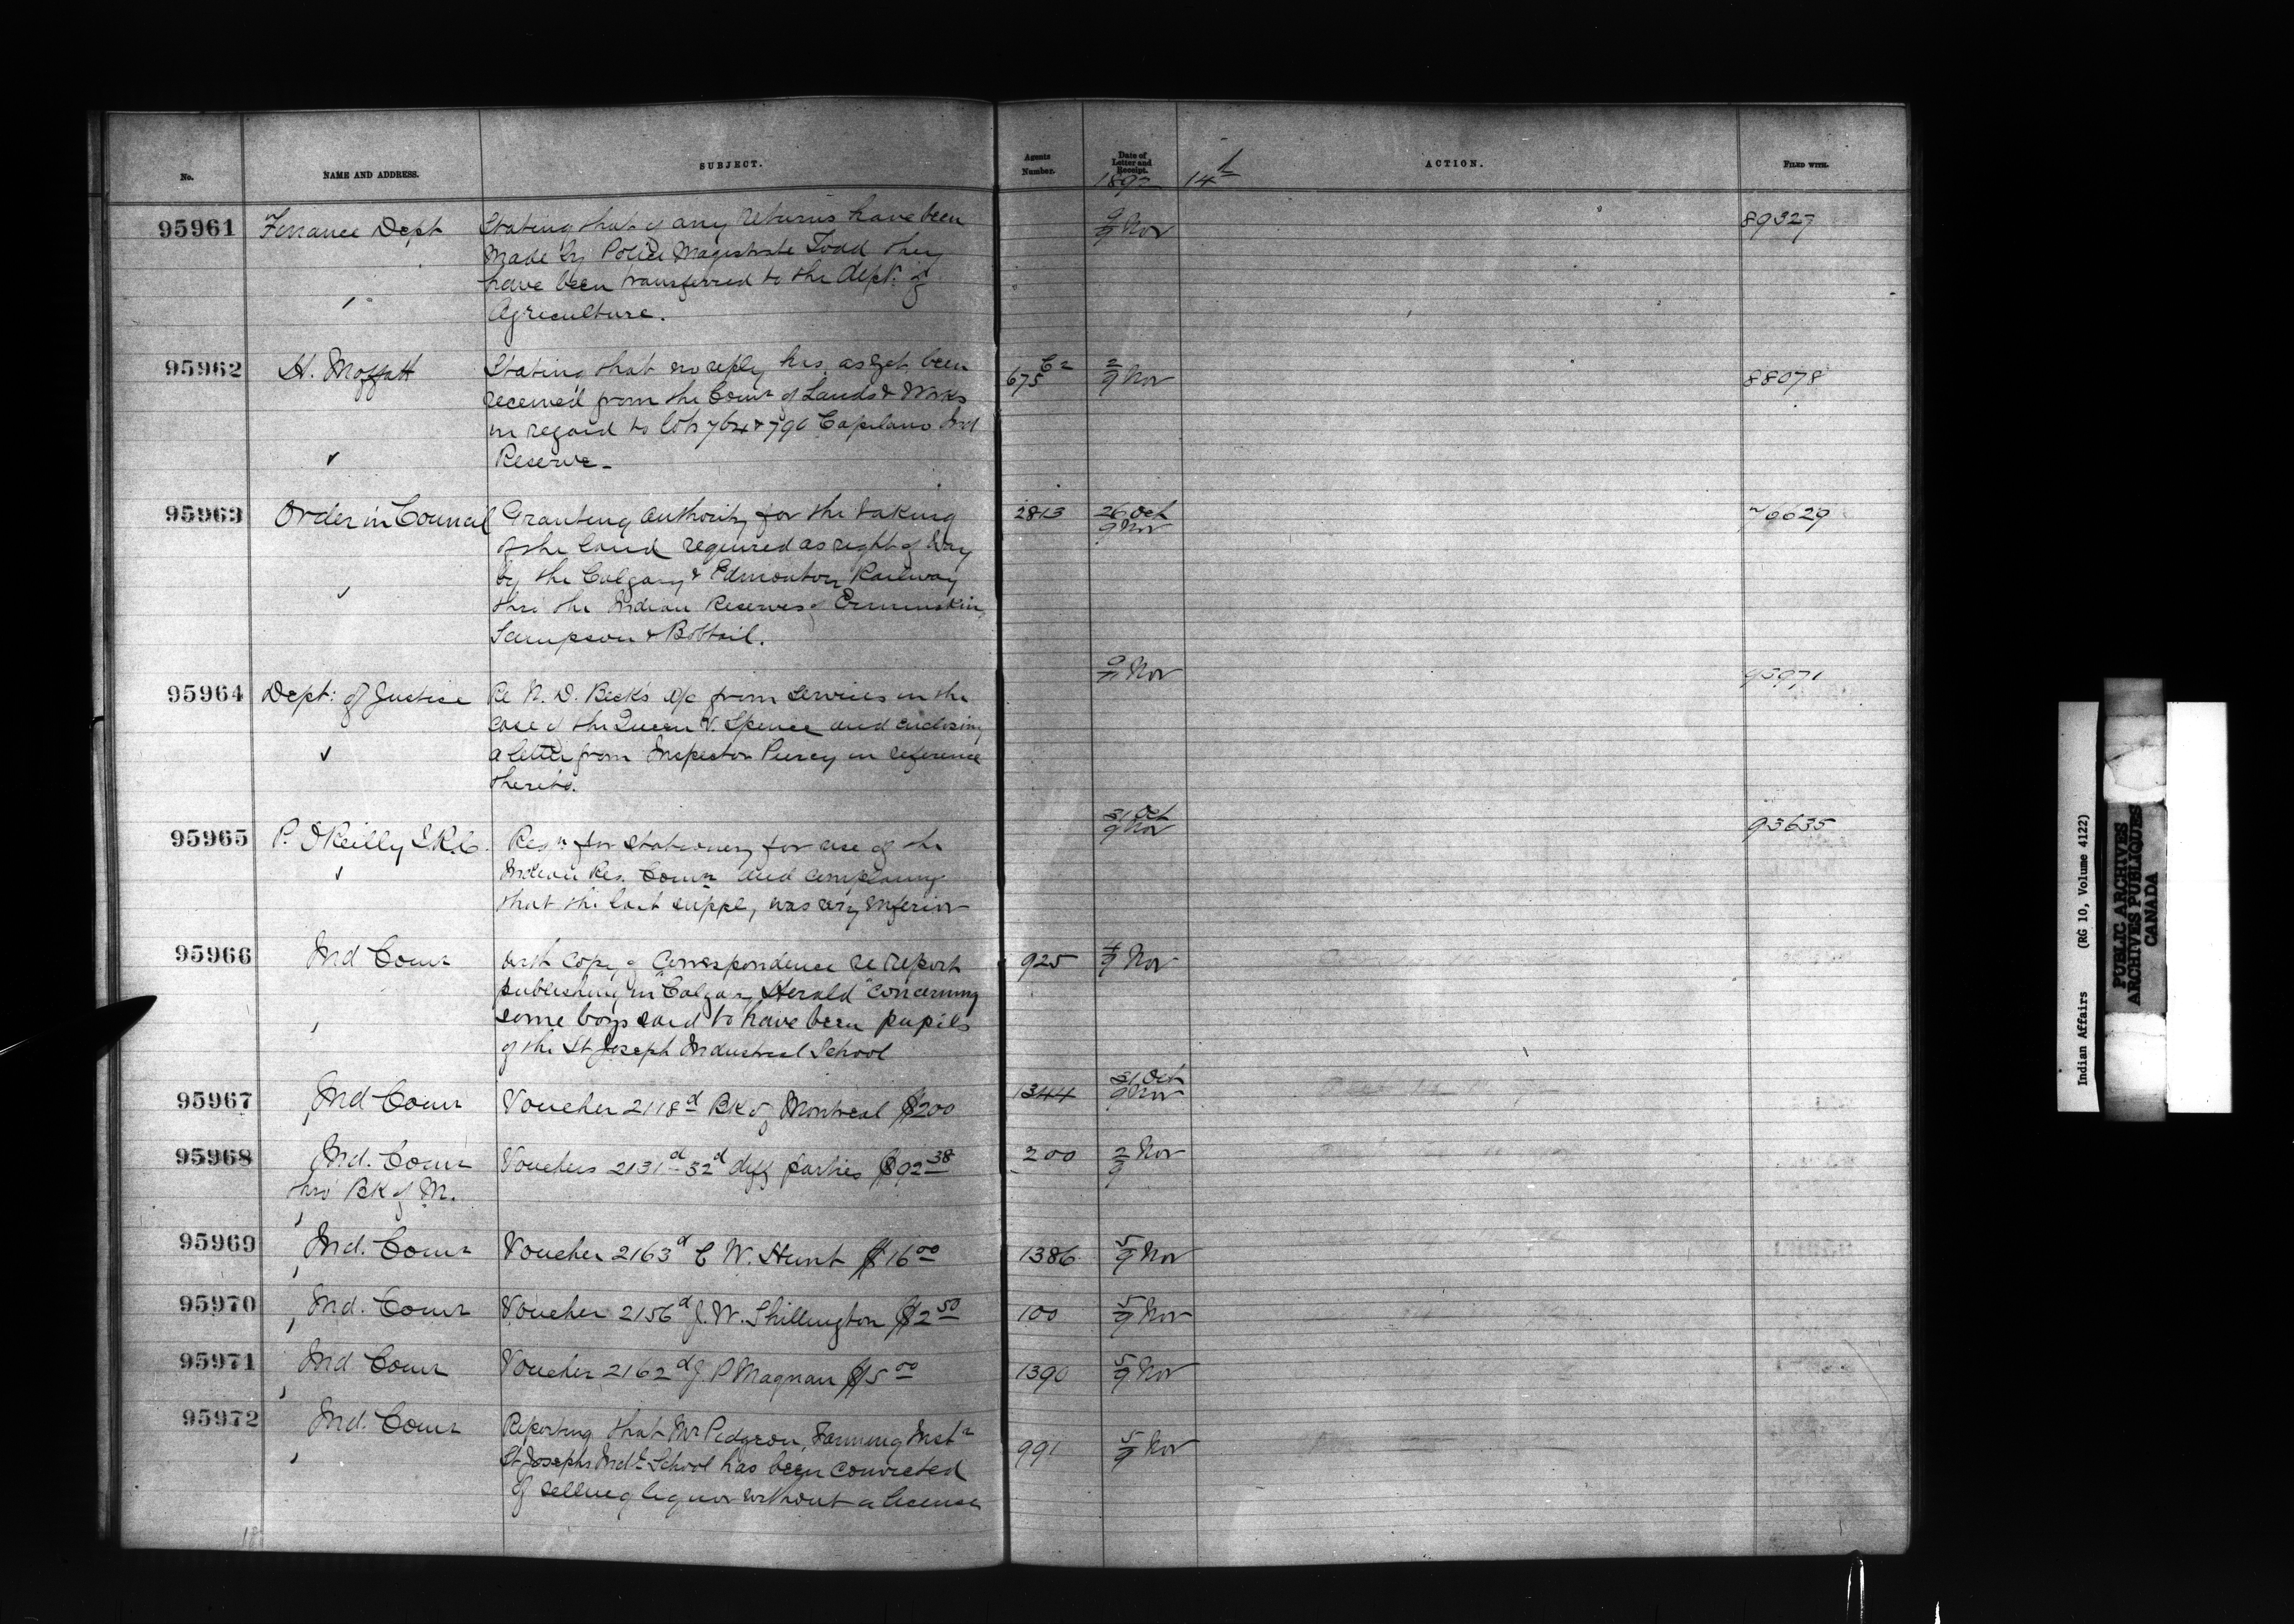 No.
NAME AND ADDRESS.
SUBJECT.
Agents Number.
Date of Letter and Receipt.
ACTION.
FILED WITH.
189
14
95961 Finance Dept Stating that if any returns have been 9/9 Nov 89327
made by Police Magistrate Todd they
have been transferred to the Dept. of
Agriculture.
95962 H. Moffatt Stating that no reply has as yet been 675 2/9 Nov 88078
received from the Comr of Lands & Works
in regard to lots 764 & 790 Capilano Ind
Reserve
95963 Order in Council Granting authority for the taking 2813 26 Oct 9 Nov 70629
of the land required as right of Way
by the Calgary & Edmonton Railway
thro the Indian Reserves of Ermineskin
Sampson & Bobtail.
95964 Dept: of Justice Re N. D. Beck's a/c from services in the Nov 95971
case of the Queen V. Spence and enclosing
a letter from Inspector Piercy in reference
thereto.
95965 P. O'Reilly I.R.C. Reqn for stationery for use of the 31 Oct 9 Nov 93635
Indian Res. Comn and complaining
that the last supply was very inferior
95966 Ind Comr with copy of Correspondence re report 925 4/9 Nov
publishing in "Calgary Herald" concerning
some boys said to have been pupils
of the St Joseph Industrial School
95967 Ind Comr Voucher 2118d Bk of Montreal $200 1344 31 Oct 9 Nov
95968 Ind. Comr Vouchers 2131d-32d diff parties $92.38 200 2/9 Nov
thro Bk of M.
95969 Ind. Comr Voucher 2163d C W. Hunt $16.00 1386 5/9 Nov
95970 Ind. Comr Voucher 2156d J. W. Shillington $2.50 100 5/9 Nov
95971 Ind Comr Voucher 2162d J. P Magnan $5.00 1390 5/9 Nov
95972 Ind. Comr Reporting that Mr Pidgeon, Farming Instr 991 5/9 Nov
St Josephs Indl School has been convicted
of selling liquor without a license
Indian Affairs (RG 10, Volume 4122)
PUBLIC ARCHIVES
ARCHIVES PUBLIQUES
CANADA